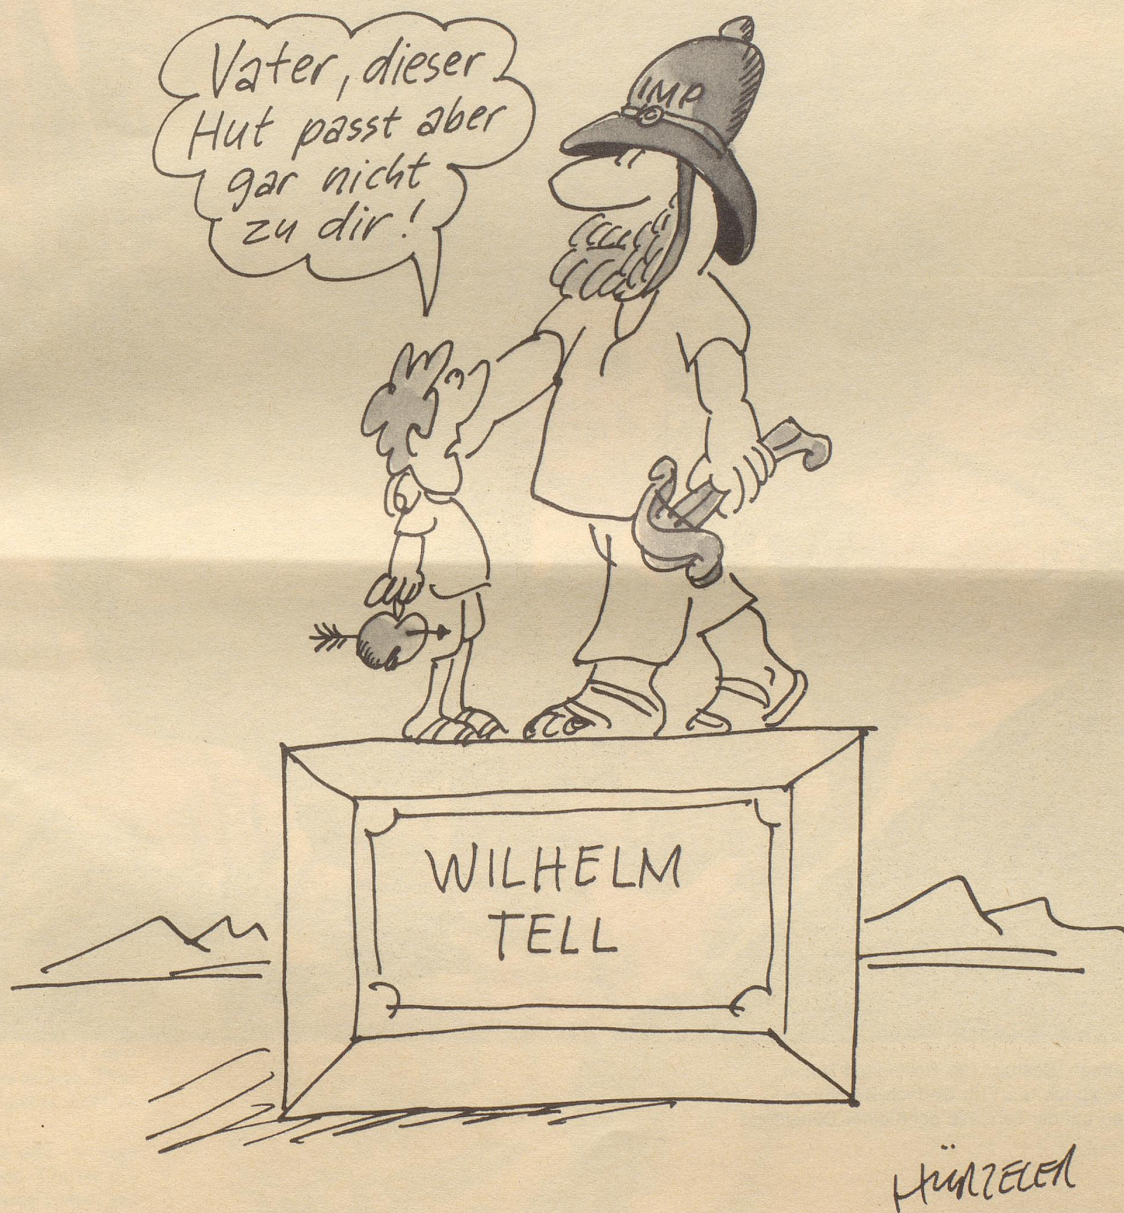 Vater, dieser
Hut passt aber
gar nicht
zu dir!
IMP
WILHELM
TELL
HÜRZELER